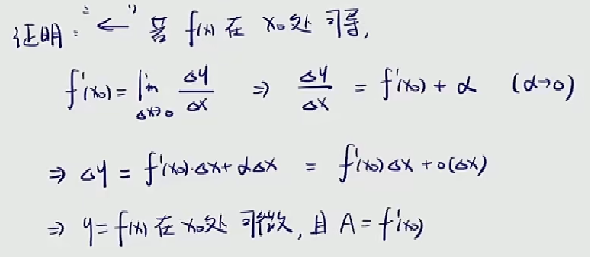 证明："←" 若 f(x) 在 x₀处 可导,
f'(x₀) = lim Δx→0 Δy/Δx ⇒ Δy/Δx = f'(x₀) + α (α→0)
⇒ Δy = f'(x₀)·Δx + αΔx = f'(x₀)Δx + o(Δx)
⇒ y = f(x) 在 x₀处 可微, 且 A = f'(x₀)